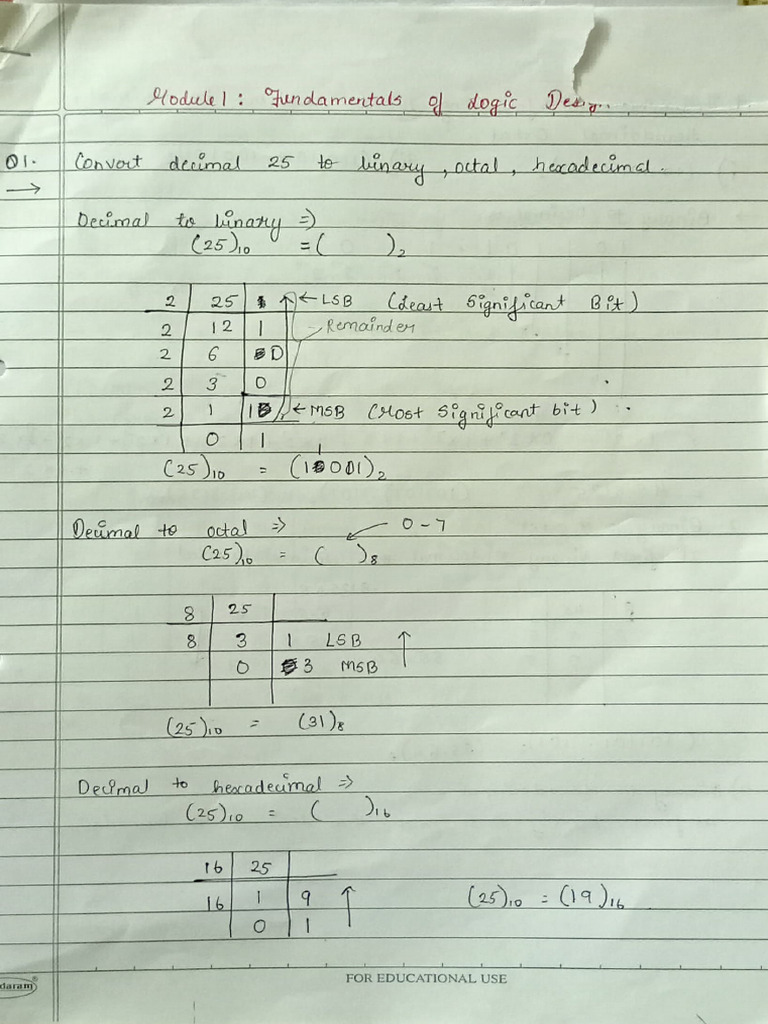 Module 1 : Fundamentals of Logic Design.
01. Convert decimal 25 to binary, octal, hexadecimal.
→
Decimal to binary ⇒
(25)10 = ( )2
2 25 ↑ ← LSB (Least Significant Bit)
2 12 1 Remainder
2 6 0
2 3 0
2 1 1 ← MSB (Most Significant bit)
0 1
(25)10 = (11001)2
Decimal to octal ⇒ 0-7
(25)10 = ( )8
8 25
8 3 1 LSB ↑
0 3 MSB
(25)10 = (31)8
Decimal to hexadecimal ⇒
(25)10 = ( )16
16 25
16 1 9 ↑ (25)10 = (19)16
0 1
daram®
FOR EDUCATIONAL USE